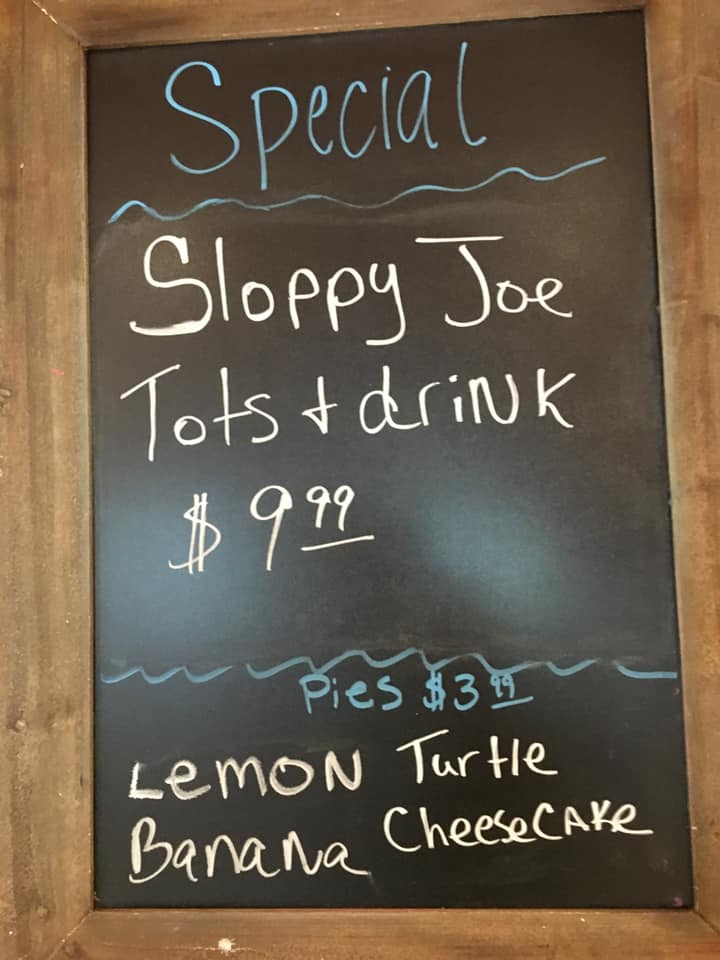 Special
Sloppy Joe
Tots + drink
$9.99
Pies $3.99
Lemon Turtle
Banana Cheesecake